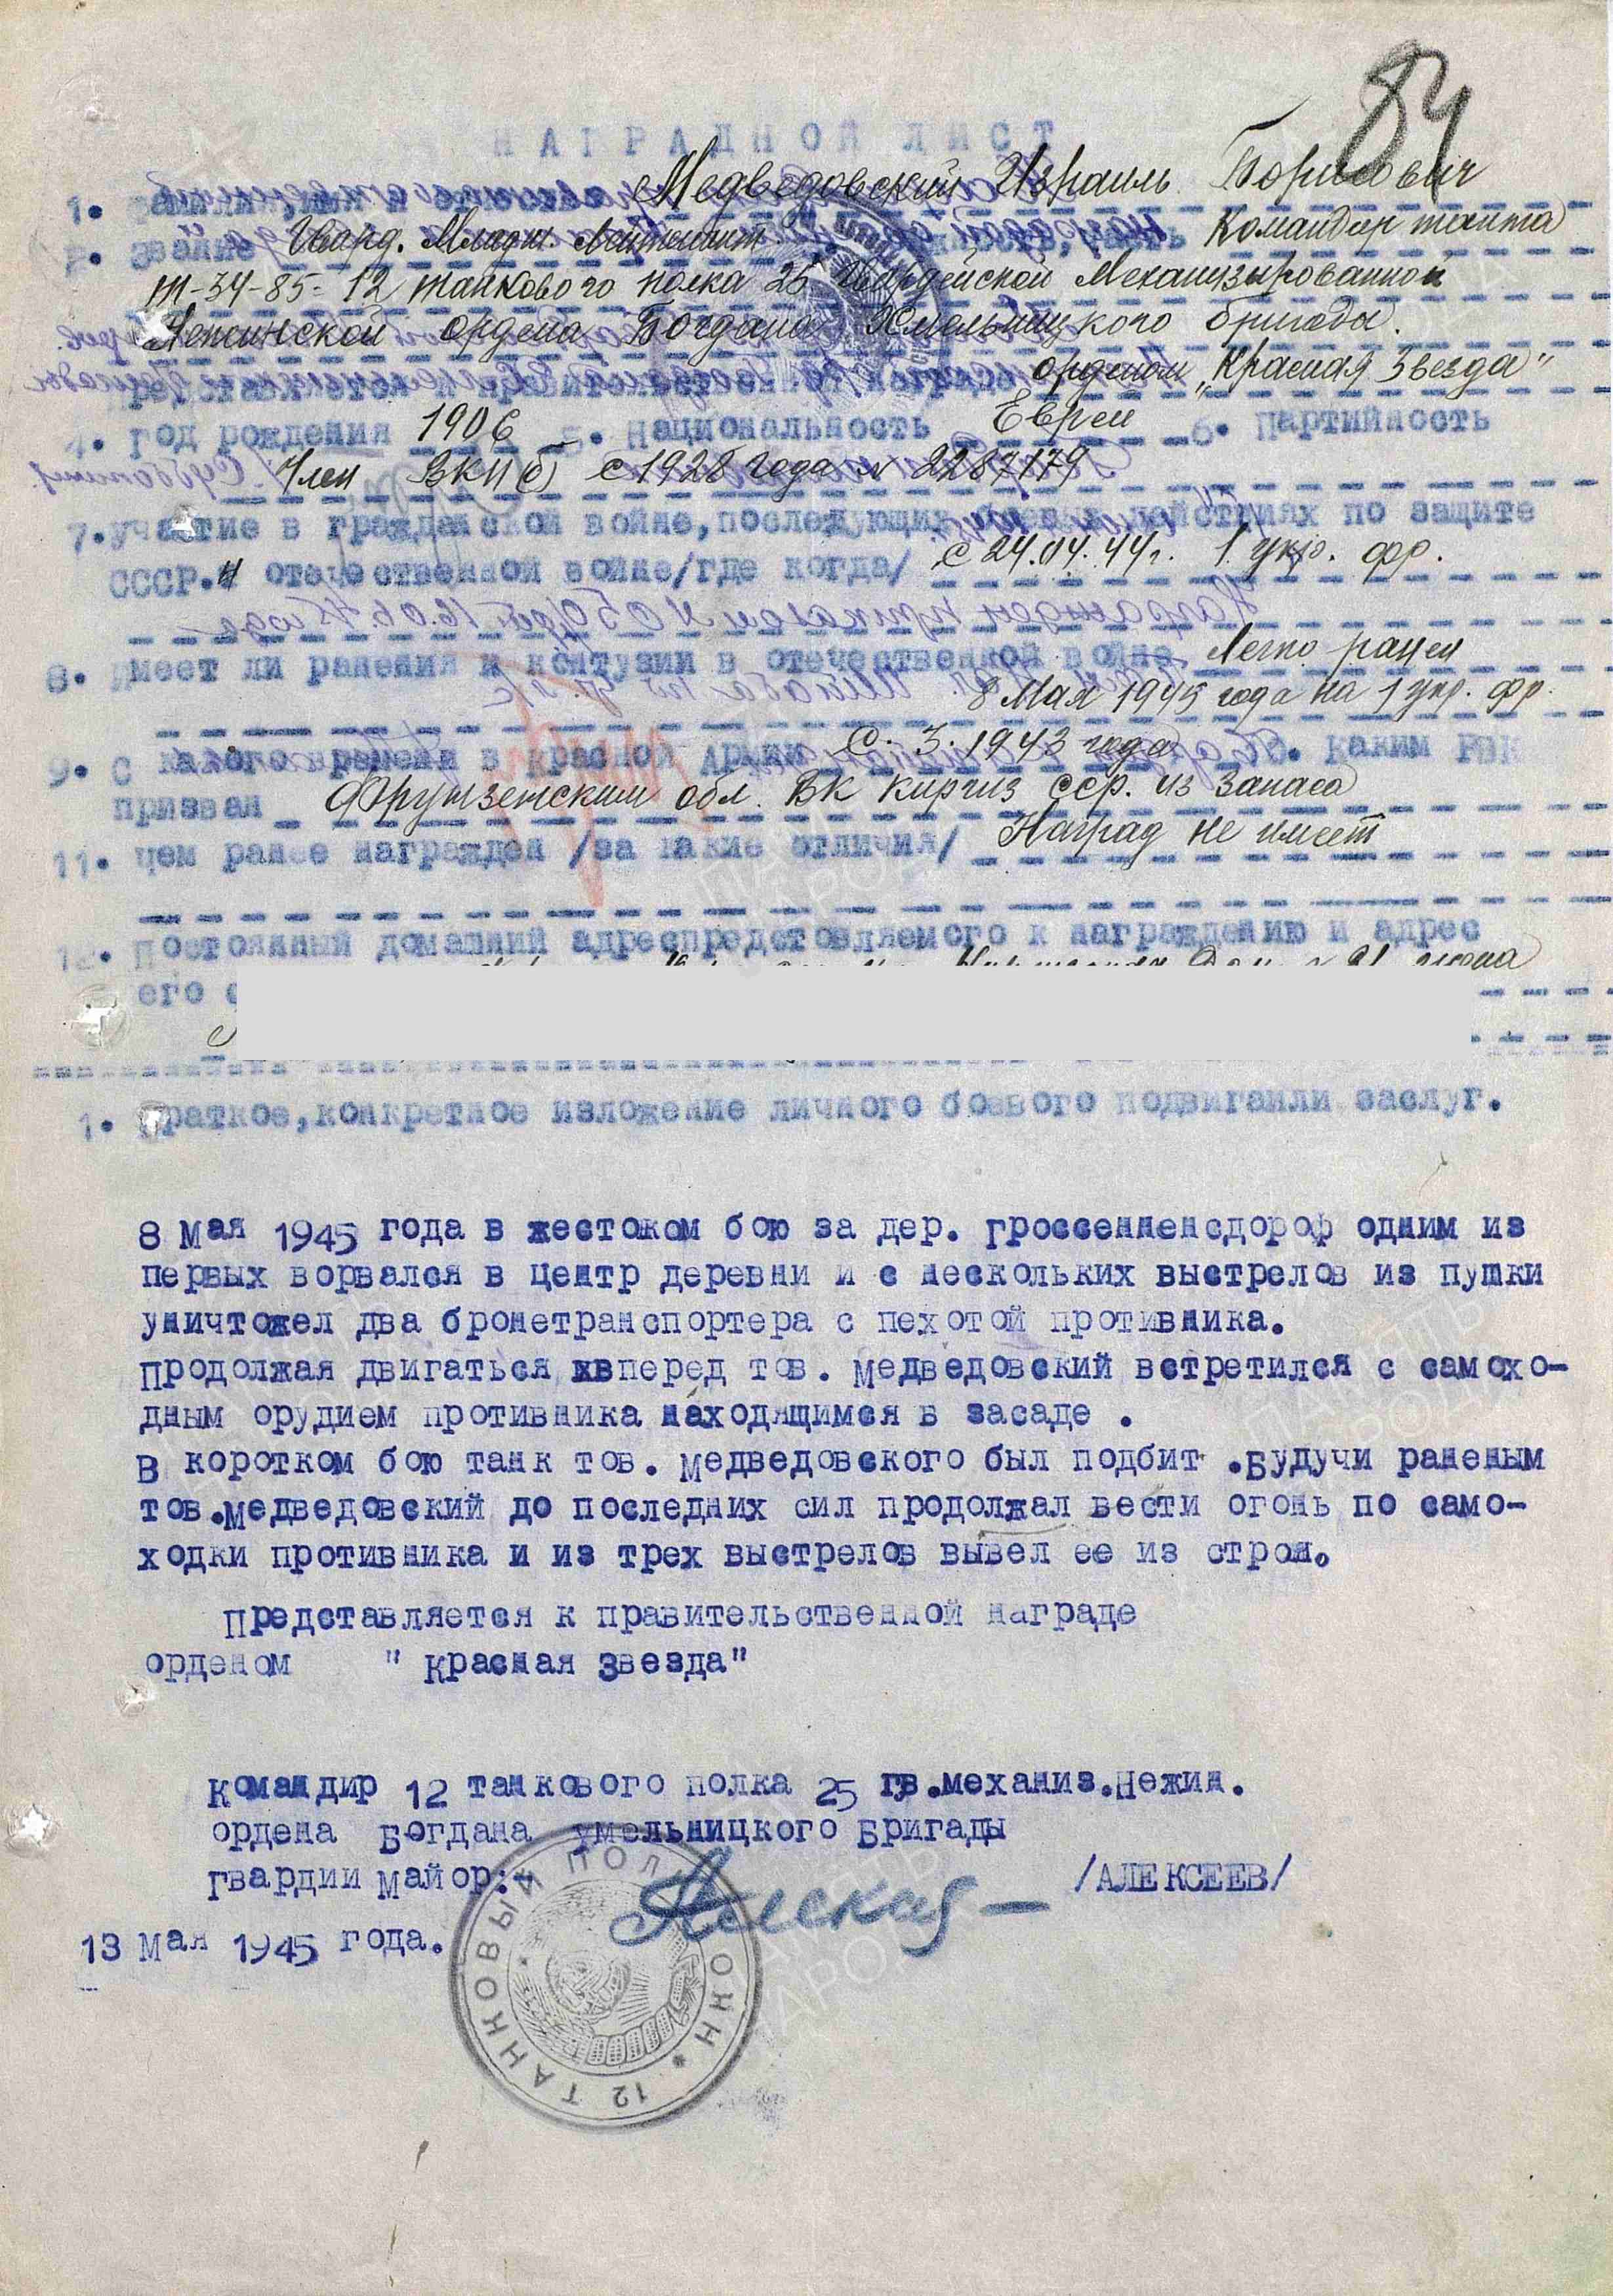 84
НАГРАДНОЙ ЛИСТ
1. Фамилия, имя и отчество Медведовский Израиль Борисович
2. Звание Гвард. Младш. Лейтенант Командир танка
Т-34-85 - 12 танкового полка 25 Гвардейской Механизированной
Нежинской ордена Богдана Хмельницкого бригады.
Представляется к правительственной орденом "Красная Звезда"
4. Год рождения 1906 5. Национальность Еврей 6. Партийность
Член ВКП(б) с 1928 года № 2287179
7. участие в гражданской войне, последующих боевых действиях по защите
СССР.и отечественной войне/где когда/ с 24.04.44г. 1 укр. фр.
8. Имеет ли ранения и контузии в отечественной войне Легко ранен
8 Мая 1945 года на 1 укр. фр.
9. С какого времени в Красной Армии С. 3. 1943 года 10. Каким РВК
призван Фрунзенским обл. ВК Киргиз сср. из Запаса
11. Чем ранее награжден /за какие отличия/ Наград не имеет
12. Постоянный домашний адреспредстовляемого к награждению и адрес
его
1. Краткое,конкретное изложение личного боевого подвигаили заслуг.
8 Мая 1945 года в жестоком бою за дер. Гроссенненсдороф одним из
первых ворвался в центр деревни и с нескольких выстрелов из пушки
уничтожел два бронетранспортера с пехотой противника.
Продолжая двигаться хвперед тов. Медведовский встретился с самохо-
дным орудием противника находящимся в засаде .
В коротком бою танк тов. Медведовского был подбит .Будучи раненым
тов.Медведовский до последних сил продолжал вести огонь по само-
ходки противника и из трех выстрелов вывел ее из строя.
Представляется к правительственной награде
орденом " Красная Звезда"
Командир 12 танкового полка 25 гв.механиз.Нежин.
ордена Богдана Хмельницкого Бригады
Гвардии Майор:- /АЛЕКСЕЕВ/
13 Мая 1945 года.
12 ТАНКОВЫЙ ПОЛК